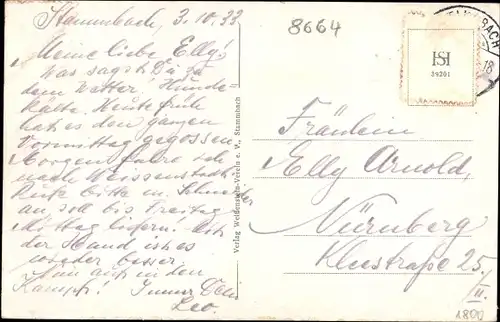 Stammbach, 3.10.33
Meine liebe Elly!
Was sagst Du zu
dem Wetter! Hunde-
kälte. Heute früh
hat es den ganzen
Vormittag gegossen.
Morgen fahre ich
nach Weissenstadt
Rufe bitte m. Schneider
an soll bis Freitag
Mittag liefern. Mit
der Hand ist es
wieder besser.
Nun auf in den
Kampf! Immer Dein
Leo.
Verlag Weißenstein-Verein e. V., Stammbach
8664
BACH
18
ISI
39261
Fräulein
Elly Arnold,
Nürnberg
Kleestraße 25.
III.
1800